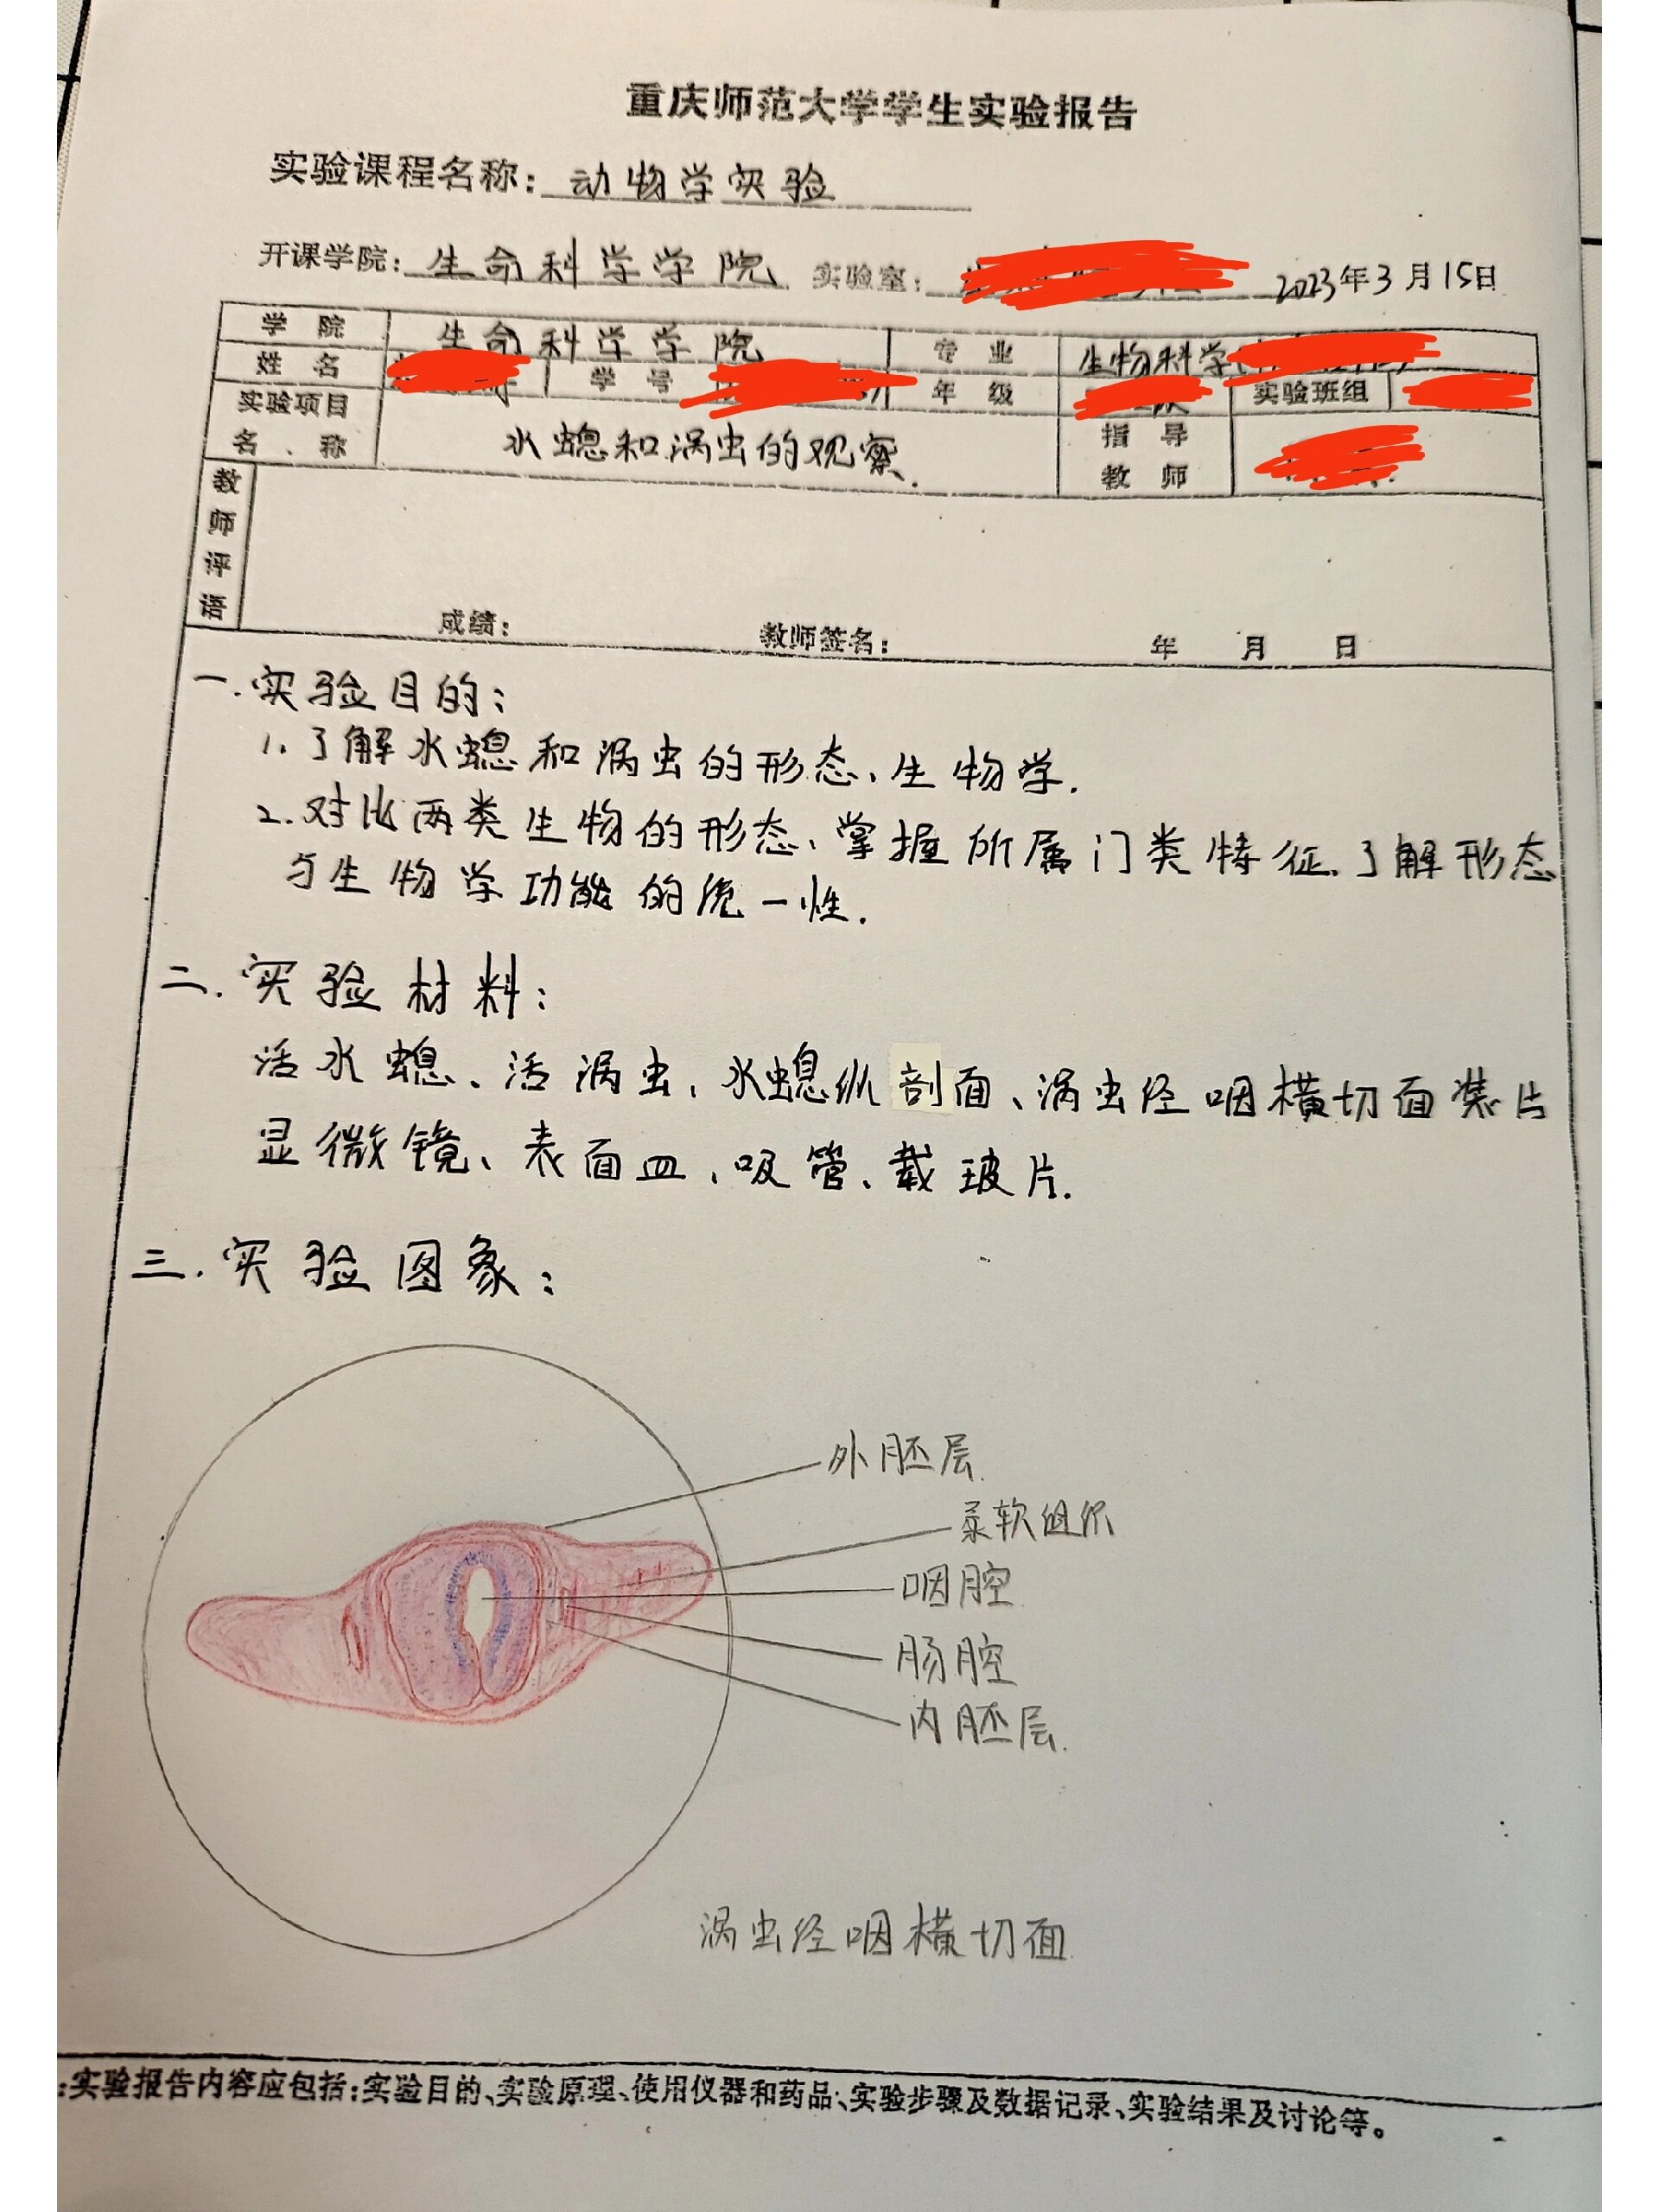 重庆师范大学学生实验报告
实验课程名称：动物学实验
开课学院：生命科学学院 实验室： 2023年3月15日
学 院 生命科学学院 专 业 生物科学
姓 名 学 号 年 级 实验班组
实验项目名、称 水螅和涡虫的观察. 指导教师
教师评语
成绩： 教师签名： 年 月 日
一.实验目的：
1.了解水螅和涡虫的形态、生物学.
2.对比两类生物的形态、掌握所属门类特征.了解形态
与生物学功能的统一性.
二.实验材料：
活水螅、活涡虫、水螅纵剖面、涡虫经咽横切面装片
显微镜、表面皿、吸管、载玻片.
三.实验图象：
外胚层.
柔软组织
咽腔
肠腔
内胚层.
涡虫经咽横切面
：实验报告内容应包括：实验目的、实验原理、使用仪器和药品、实验步骤及数据记录、实验结果及讨论等。